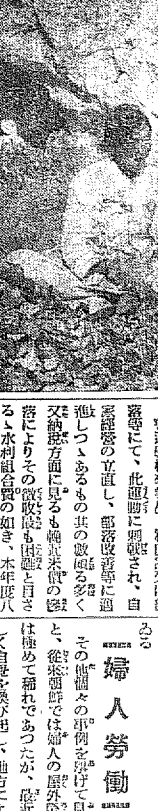 落等にて、此運動に刺戟され、自
家經營の立直し、部落改善等に邁
進しつゝあるもの其の數頗る多く
又納税方面に見るも輓近米價の慘
落によりその徴收最も困難と目さ
るゝ水利組合費の如き、本年度八
ゐる
婦人勞働
その他個々の事例を擧げて見
と、從來朝鮮では婦人の屋外勞
は極めて稀れであつたが、最近
く自覺を喚び起し、地方